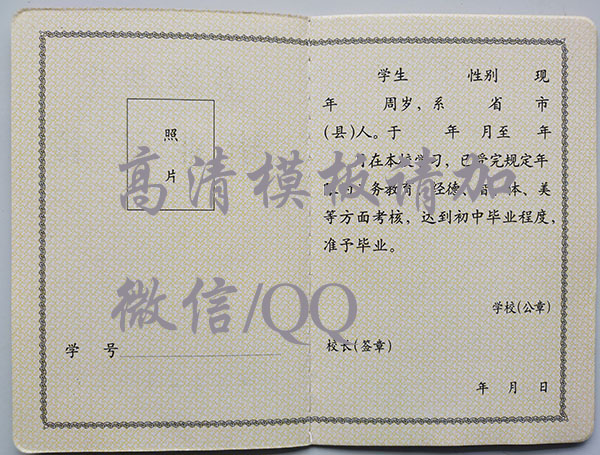 照
片
学 号
学生 性别 现
年 周岁，系 省 市
(县)人。于 年 月至 年
在本校学习，已受完规定年
务教育 经德 体、美
等方面考核，达到初中毕业程度，
准予毕业。
学校(公章)
校长(签章)
年 月 日
高清模板请加
微信/QQ